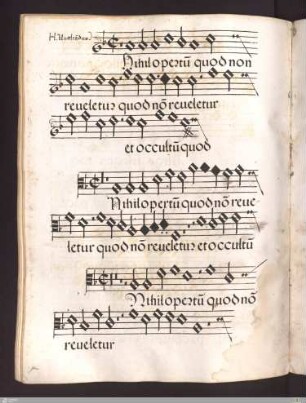 Nihil opertū quod non
reueletur quod nō reueletur
et occultū quod
Nihil opertū quod nō reue
letur quod nō reueletur et occultū
Nihil opertū quod nō
reueletur